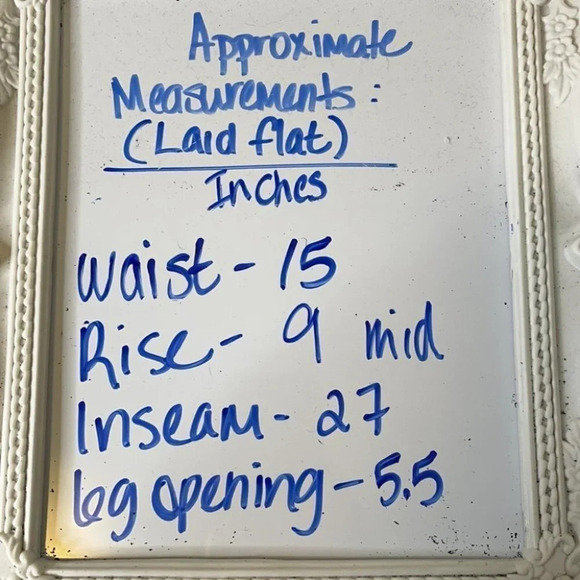 Approximate
Measurements:
(Laid flat)
Inches
Waist - 15
Rise - 9 mid
Inseam - 27
leg opening - 5.5